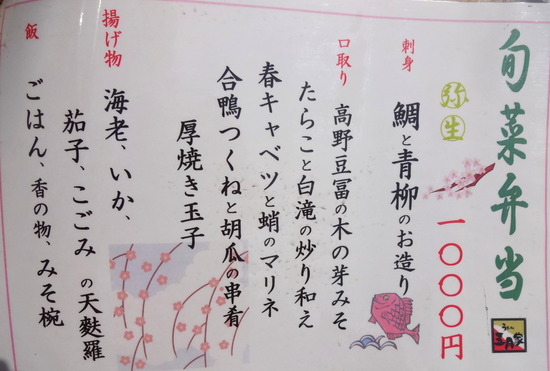 旬菜弁当
弥生
一〇〇〇円
刺身
鯛と青柳のお造り
口取り
高野豆冨の木の芽みそ
たらこと白滝の炒り和え
春キャベツと蛸のマリネ
合鴨つくねと胡瓜の串肴
厚焼き玉子
揚げ物
海老、いか、
茄子、こごみの天麩羅
飯
ごはん、香の物、みそ椀